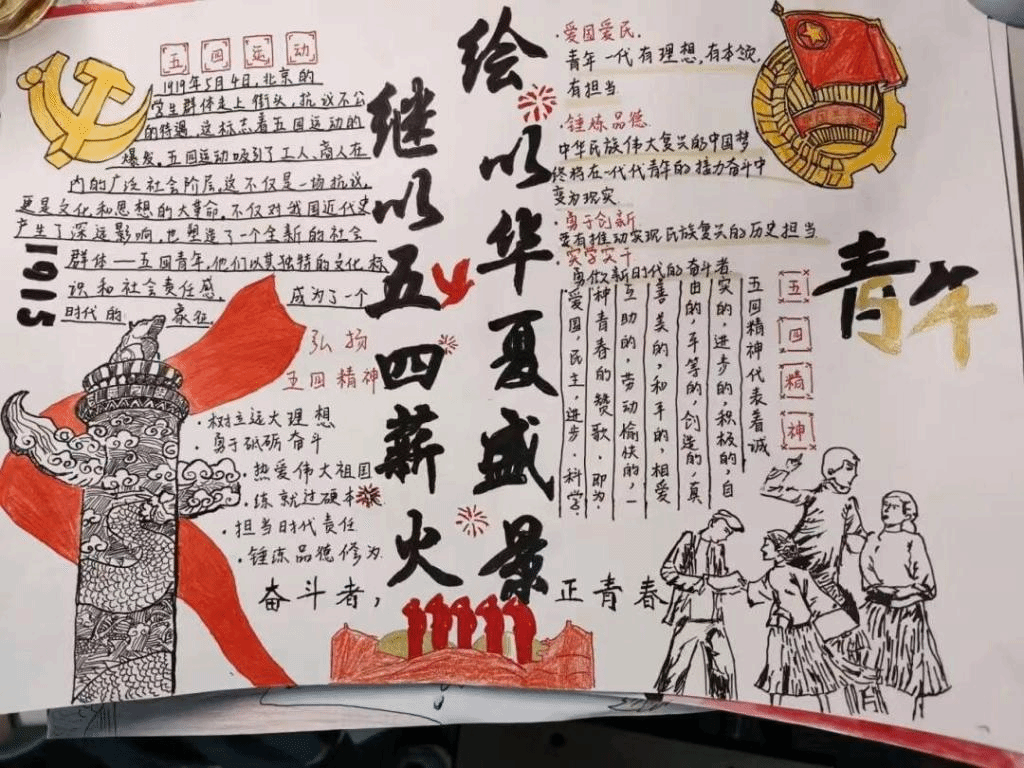 五四运动
1919年5月4日,北京的
学生群体走上街头,抗议不公
的待遇.这标志着五四运动的
爆发.五四运动吸引了工人、商人在
内的广泛社会阶层.这不仅是一场抗议,
更是文化和思想的大革命.不仅对我国近代史
产生了深远影响,也塑造了一个全新的社会
群体——五四青年.他们以其独特的文化标
识和社会责任感, 成为了一个
时代的 象征.
1915
弘扬
五四精神
·树立远大理想
·勇于砥砺奋斗
·热爱伟大祖国
·练就过硬本
·担当时代责任
·锤炼品德修为
继以五四薪火
绘以华夏盛景
奋斗者,
正青春
·爱国爱民.
青年一代有理想,有本领,
有担当
·锤炼品德
中华民族伟大复兴的中国梦
终将在一代代青年的接力奋斗中
变为现实
·勇于创新
要有推动实现民族复兴的历史担当
·实学实干
勇做新时代的奋斗者
青年
五四精神
五四精神代表着诚
实的,进步的,积极的,自
由的,平等的,创造的,真
善美的,和平的,相爱
互助的,劳动愉快的,一
神青春的赞歌.即为:
爱国,民主,进步,科学